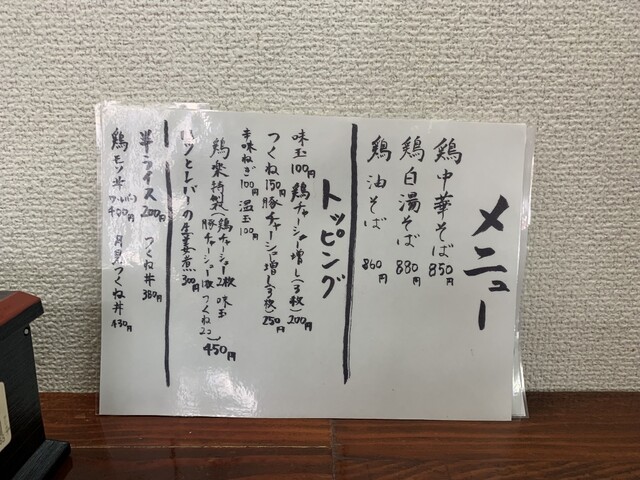 メニュー
鶏中華そば 850円
鶏白湯そば 880円
鶏油そば 860円
トッピング
味玉100円 鶏チャーシュー増し(3枚)200円
つくね150円 豚チャーシュー増し(3枚)250円
辛味ねぎ100円 温玉100円
鶏楽特製(鶏チャーシュー2枚 味玉
豚チャーシュー1枚 つくね2コ) 450円
ハツとレバーの生姜煮 300円
半ライス 200円 つくね丼 380円
鶏モツ丼 400円 月見つくね丼 430円